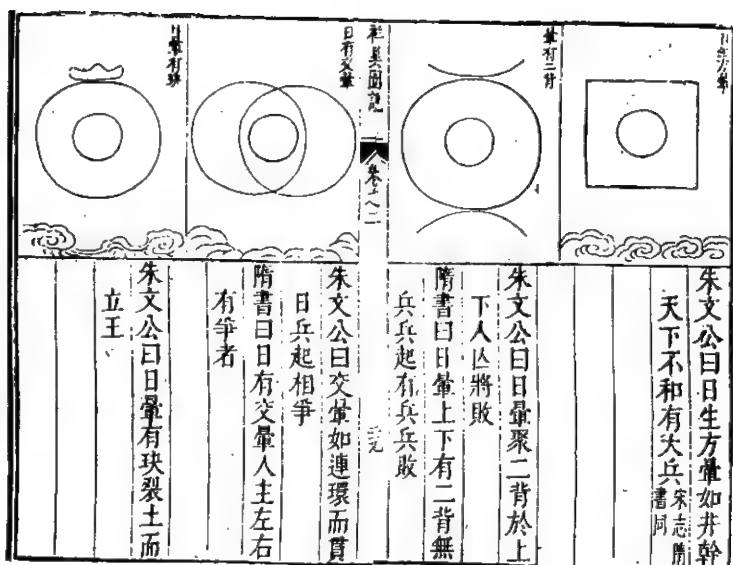 日生方暈
朱文公曰日生方暈如井幹
天下不和有大兵宋志隋
書同
暈有二背
朱文公曰日暈聚二背於上
下人亾將敗
隋書曰日暈上下有二背無
兵兵起有兵兵敗
祥異圖說
卷之八二
三九
日有交暈
朱文公曰交暈如連環而貫
日兵起相爭
隋書曰日有交暈人主左右
有爭者
日暈有玦
朱文公曰日暈有玦裂土而
立王